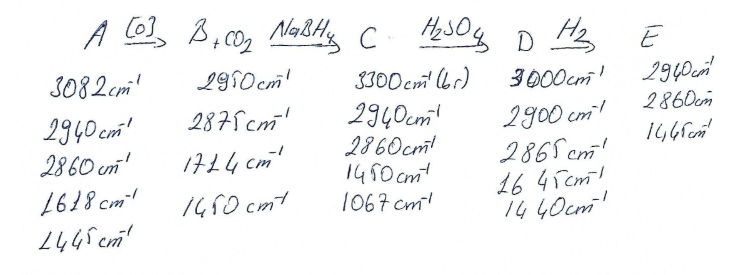 A [O]→ B+CO2 NaBH4→ C H2SO4→ D H2→ E
3082cm⁻¹ 2950cm⁻¹ 3300cm⁻¹(br) 3000cm⁻¹ 2940cm⁻¹
2940cm⁻¹ 2875cm⁻¹ 2940cm⁻¹ 2900cm⁻¹ 2860cm
2860cm⁻¹ 1714cm⁻¹ 2860cm⁻¹ 2865cm⁻¹ 1445cm⁻¹
1618cm⁻¹ 1450cm⁻¹ 1450cm⁻¹ 1645cm⁻¹
1445cm⁻¹ 1067cm⁻¹ 1440cm⁻¹